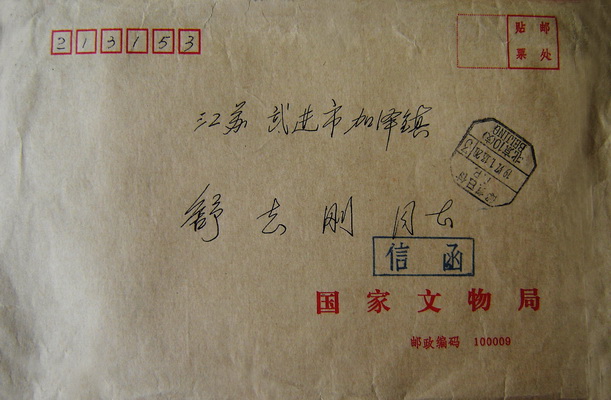 213153
贴 邮
票 处
江苏 武进市加泽镇
舒志刚 同志
信函
国家文物局
邮政编码 100009